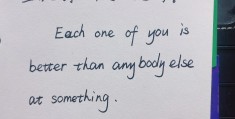 Each one of you is
better than anybody else
at something.